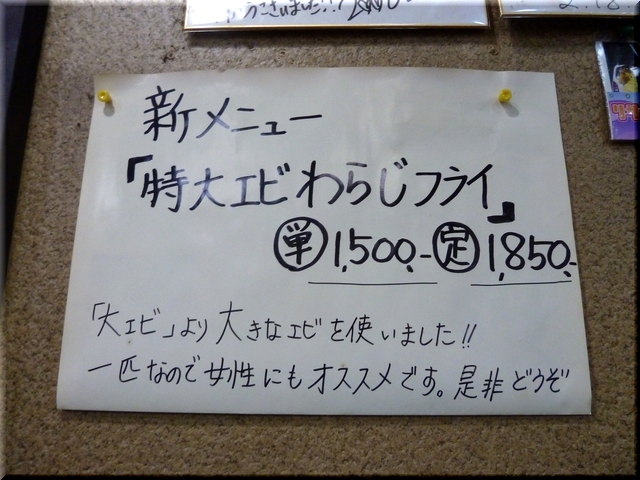 うございました!!
新メニュー
「特大エビわらじフライ」
単 1,500.- 定 1,850.-
「大エビ」より大きなエビを使いました!!
一匹なので女性にもオススメです。是非どうぞ